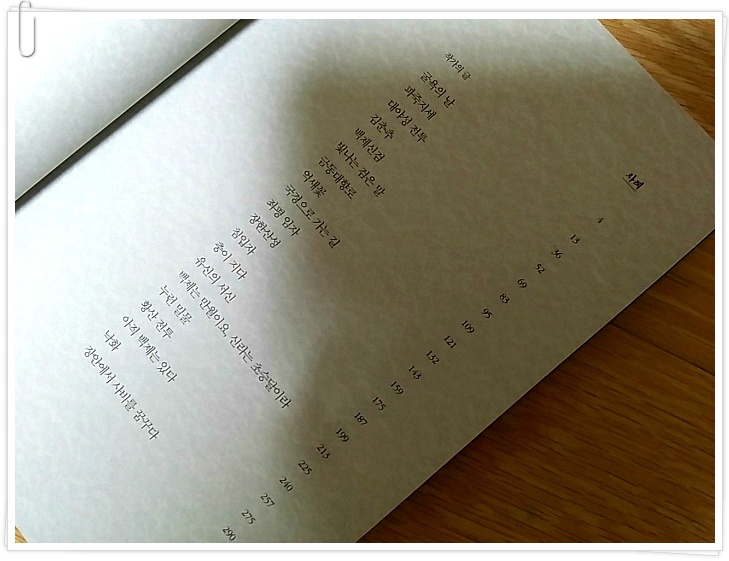 차례
작가의 글 4
굴욕의 날 13
파죽지세 36
대야성 전투 52
김춘추 69
백제신검 83
빛나는 검은 말 95
금동대향로 109
억새꽃 121
국경으로 가는 길 132
좌평 임자 143
장한산성 159
침입자 175
충이 지다 187
유신의 서신 199
백제는 만월이오, 신라는 초승달이라 213
누런 밀물 225
황산 전투 240
아직 백제는 있다 257
낙화 275
장안에서 사비를 꿈꾸다 290